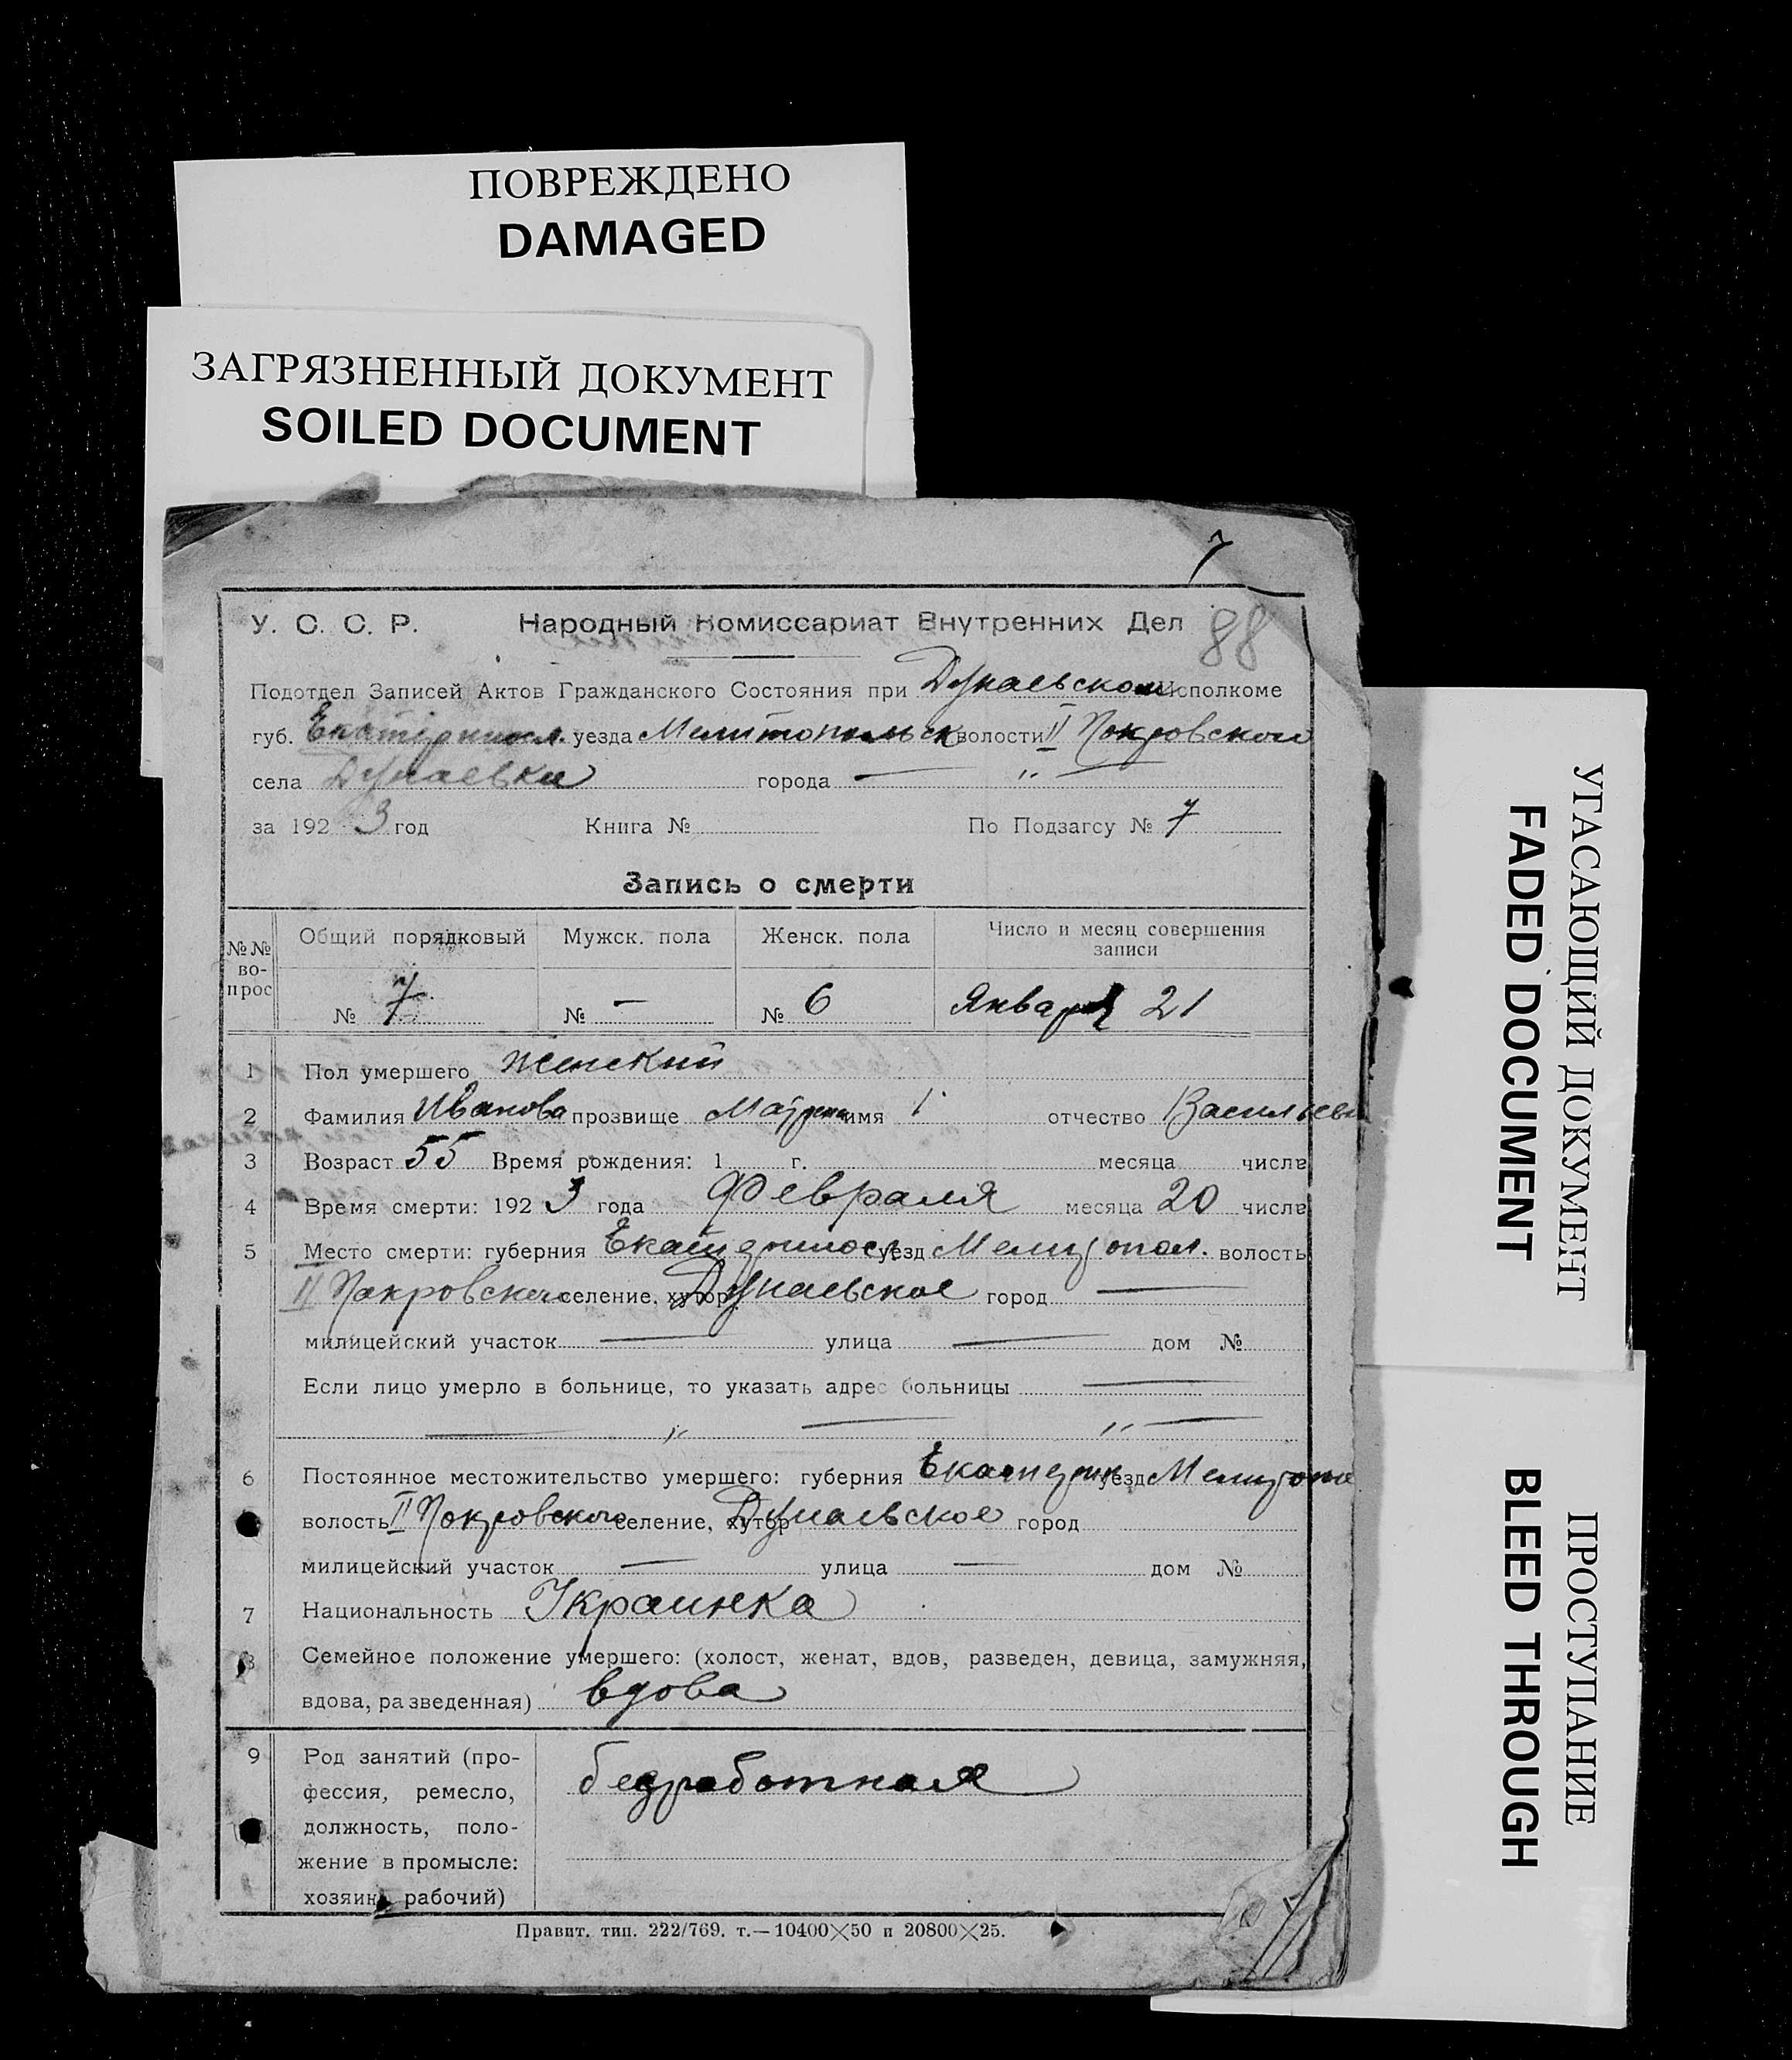 ПОВРЕЖДЕНО
DAMAGED
ЗАГРЯЗНЕННЫЙ ДОКУМЕНТ
SOILED DOCUMENT
7
У. С. С. Р. Народный Комиссариат Внутренних Дел 88
Подотдел Записей Актов Гражданского Состояния при Дунаевском исполкоме
губ. Екатериносл. уезда Мелитопольск волости II Покровской
села Дунаевки города — „ —
за 1923 год Книга № По Подзагсу № 7
Запись о смерти
№№ вопрос Общий порядковый Мужск. пола Женск. пола Число и месяц совершения записи
№ 7 № — № 6 Января 21
1 Пол умершего женский
2 Фамилия Иванова прозвище Матрена имя 1 отчество Васильев
3 Возраст 55 Время рождения: 1 г. месяца числа
4 Время смерти: 1923 года Февраля месяца 20 числа
5 Место смерти: губерния Екатериносл уезд Мелитопол. волость
II Покровского селение, хутор Дунаевское город —
милицейский участок — улица — дом №
Если лицо умерло в больнице, то указать адрес больницы —
— „ — „ —
6 Постоянное местожительство умершего: губерния Екатерин уезд Мелитопо
волость II Покровского селение, хутор Дунаевское город
милицейский участок — улица — дом №
7 Национальность Украинка
8 Семейное положение умершего: (холост, женат, вдов, разведен, девица, замужняя,
вдова, разведенная) вдова
9 Род занятий (про-
фессия, ремесло, безработная
должность, поло-
жение в промысле:
хозяин, рабочий)
Правит. тип. 222/769. т.—10400×50 и 20800×25.
УГАСАЮЩИЙ ДОКУМЕНТ
FADED DOCUMENT
ПРОСТУПАНИЕ
BLEED THROUGH